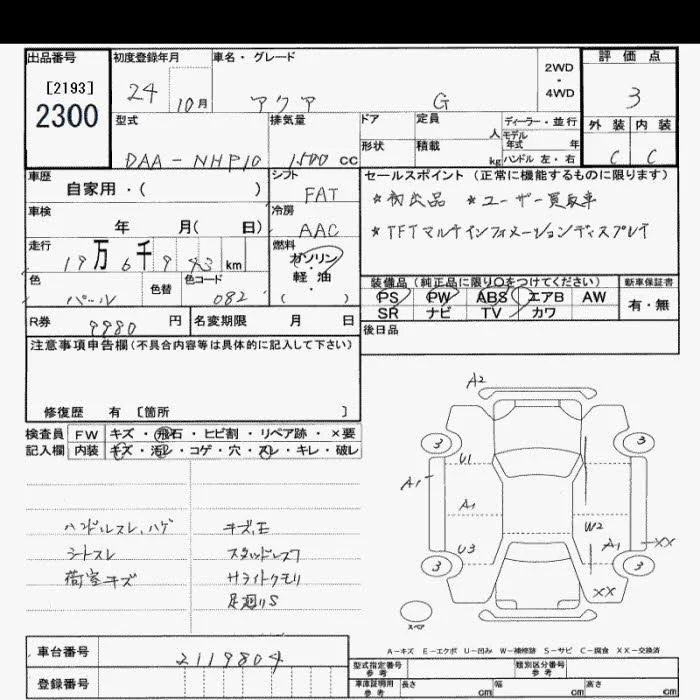 出品番号
[2193]
2300
初度登録年月
24 10月
車名・グレード
アクア G
2WD
・
4WD
評価点
3
外装 内装
C C
型式
DAA-NHP10
排気量
1500 cc
ドア
定員
人
ディーラー・並行
モデル
年式 年
形状
積載
kg
ハンドル 左・右
車歴
自家用・( )
シフト
FAT
車検
年 月( 日)
冷房
AAC
走行
19万6千983km
燃料
ガソリン
・
軽・油
( )
色
パール
色替
色コード
082
R券
9980 円
名変期限 月 日
セールスポイント(正常に機能するものに限ります)
☆初出品 ☆ユーザー買取車
☆TFTマルチインフォメーションディスプレイ
装備品(純正品に限り〇をつけてください)
PS PW ABS エアB AW
SR ナビ TV カワ
新車保証書
有・無
後日品
注意事項申告欄(不具合内容等は具体的に記入して下さい)
修復歴 有 [箇所 ]
検査員
記入欄
FW キズ・飛石・ヒビ割・リペア跡・×要
内装 キズ・汚レ・コゲ・穴・スレ・キレ・破レ
ハンドルスレ、ハゲ
シートスレ
荷室キズ
キズ、E
スタッドレス7
サライトクモリ
足廻りS
A2
3
3
U1
A1
A1
W2
U3
A1
XX
3
3
XX
スペア
A-キズ E-エクボ U-凹み W-補修跡 S-サビ C-腐食 XX-交換済
車台番号
2119804
登録番号
型式指定番号
参考
類別区分番号
参考
車庫証明用
参考
長さ cm
幅 cm
高さ cm